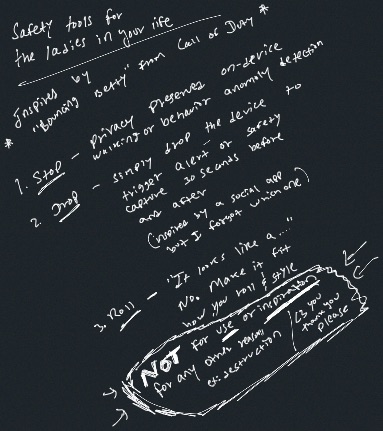 Safety tools for
the ladies in your life
*
Inspired by
"Bouncing Betty" from Call of Duty
*
1. Stop - Privacy preserves on-device
walking or behavior anomaly detection
2. Drop - simply drop the device to
trigger alert or safety
capture 30 seconds before
and after
(inspired by a social app
but I forgot which one)
3. Roll - "It looks like a ..."
No. Make it fit
how you roll & style
NOT for use or inspiration
for any other reason
ex: destruction
<3 you
thank you
please